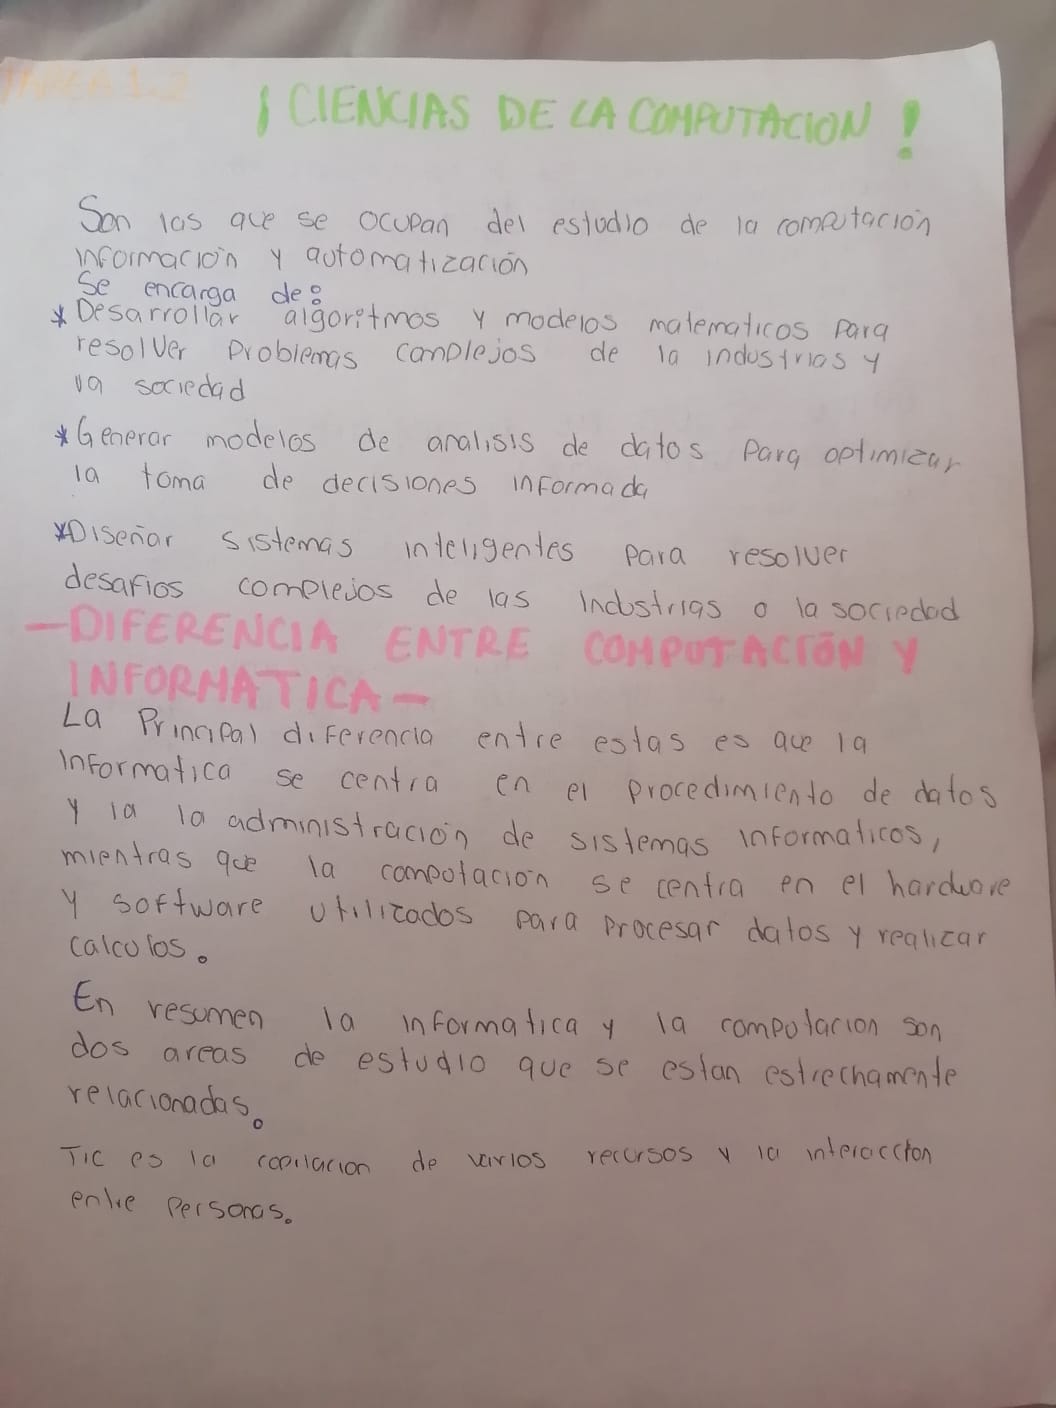 TAREA 1.2
¡ CIENCIAS DE LA COMPUTACION !
Son las que se ocupan del estudio de la computación
información y automatización
Se encarga de:
* Desarrollar algoritmos y modelos matematicos para
resolver problemas complejos de la industrias y
va sociedad
* Generar modelos de analisis de datos para optimizar
la toma de decisiones informada
* Diseñar sistemas inteligentes para resolver
desafios complejos de las industrias o la sociedad
- DIFERENCIA ENTRE COMPUTACIÓN Y
INFORMATICA -
La principal diferencia entre estas es que la
informatica se centra en el procedimiento de datos
y la la administración de sistemas informaticos,
mientras que la computación se centra en el hardware
y software utilizados para procesar datos y realizar
calculos.
En resumen la informatica y la computacion son
dos areas de estudio que se estan estrechamente
relacionadas.
TIC es la copilacion de varios recursos y la interaccion
entre personas.